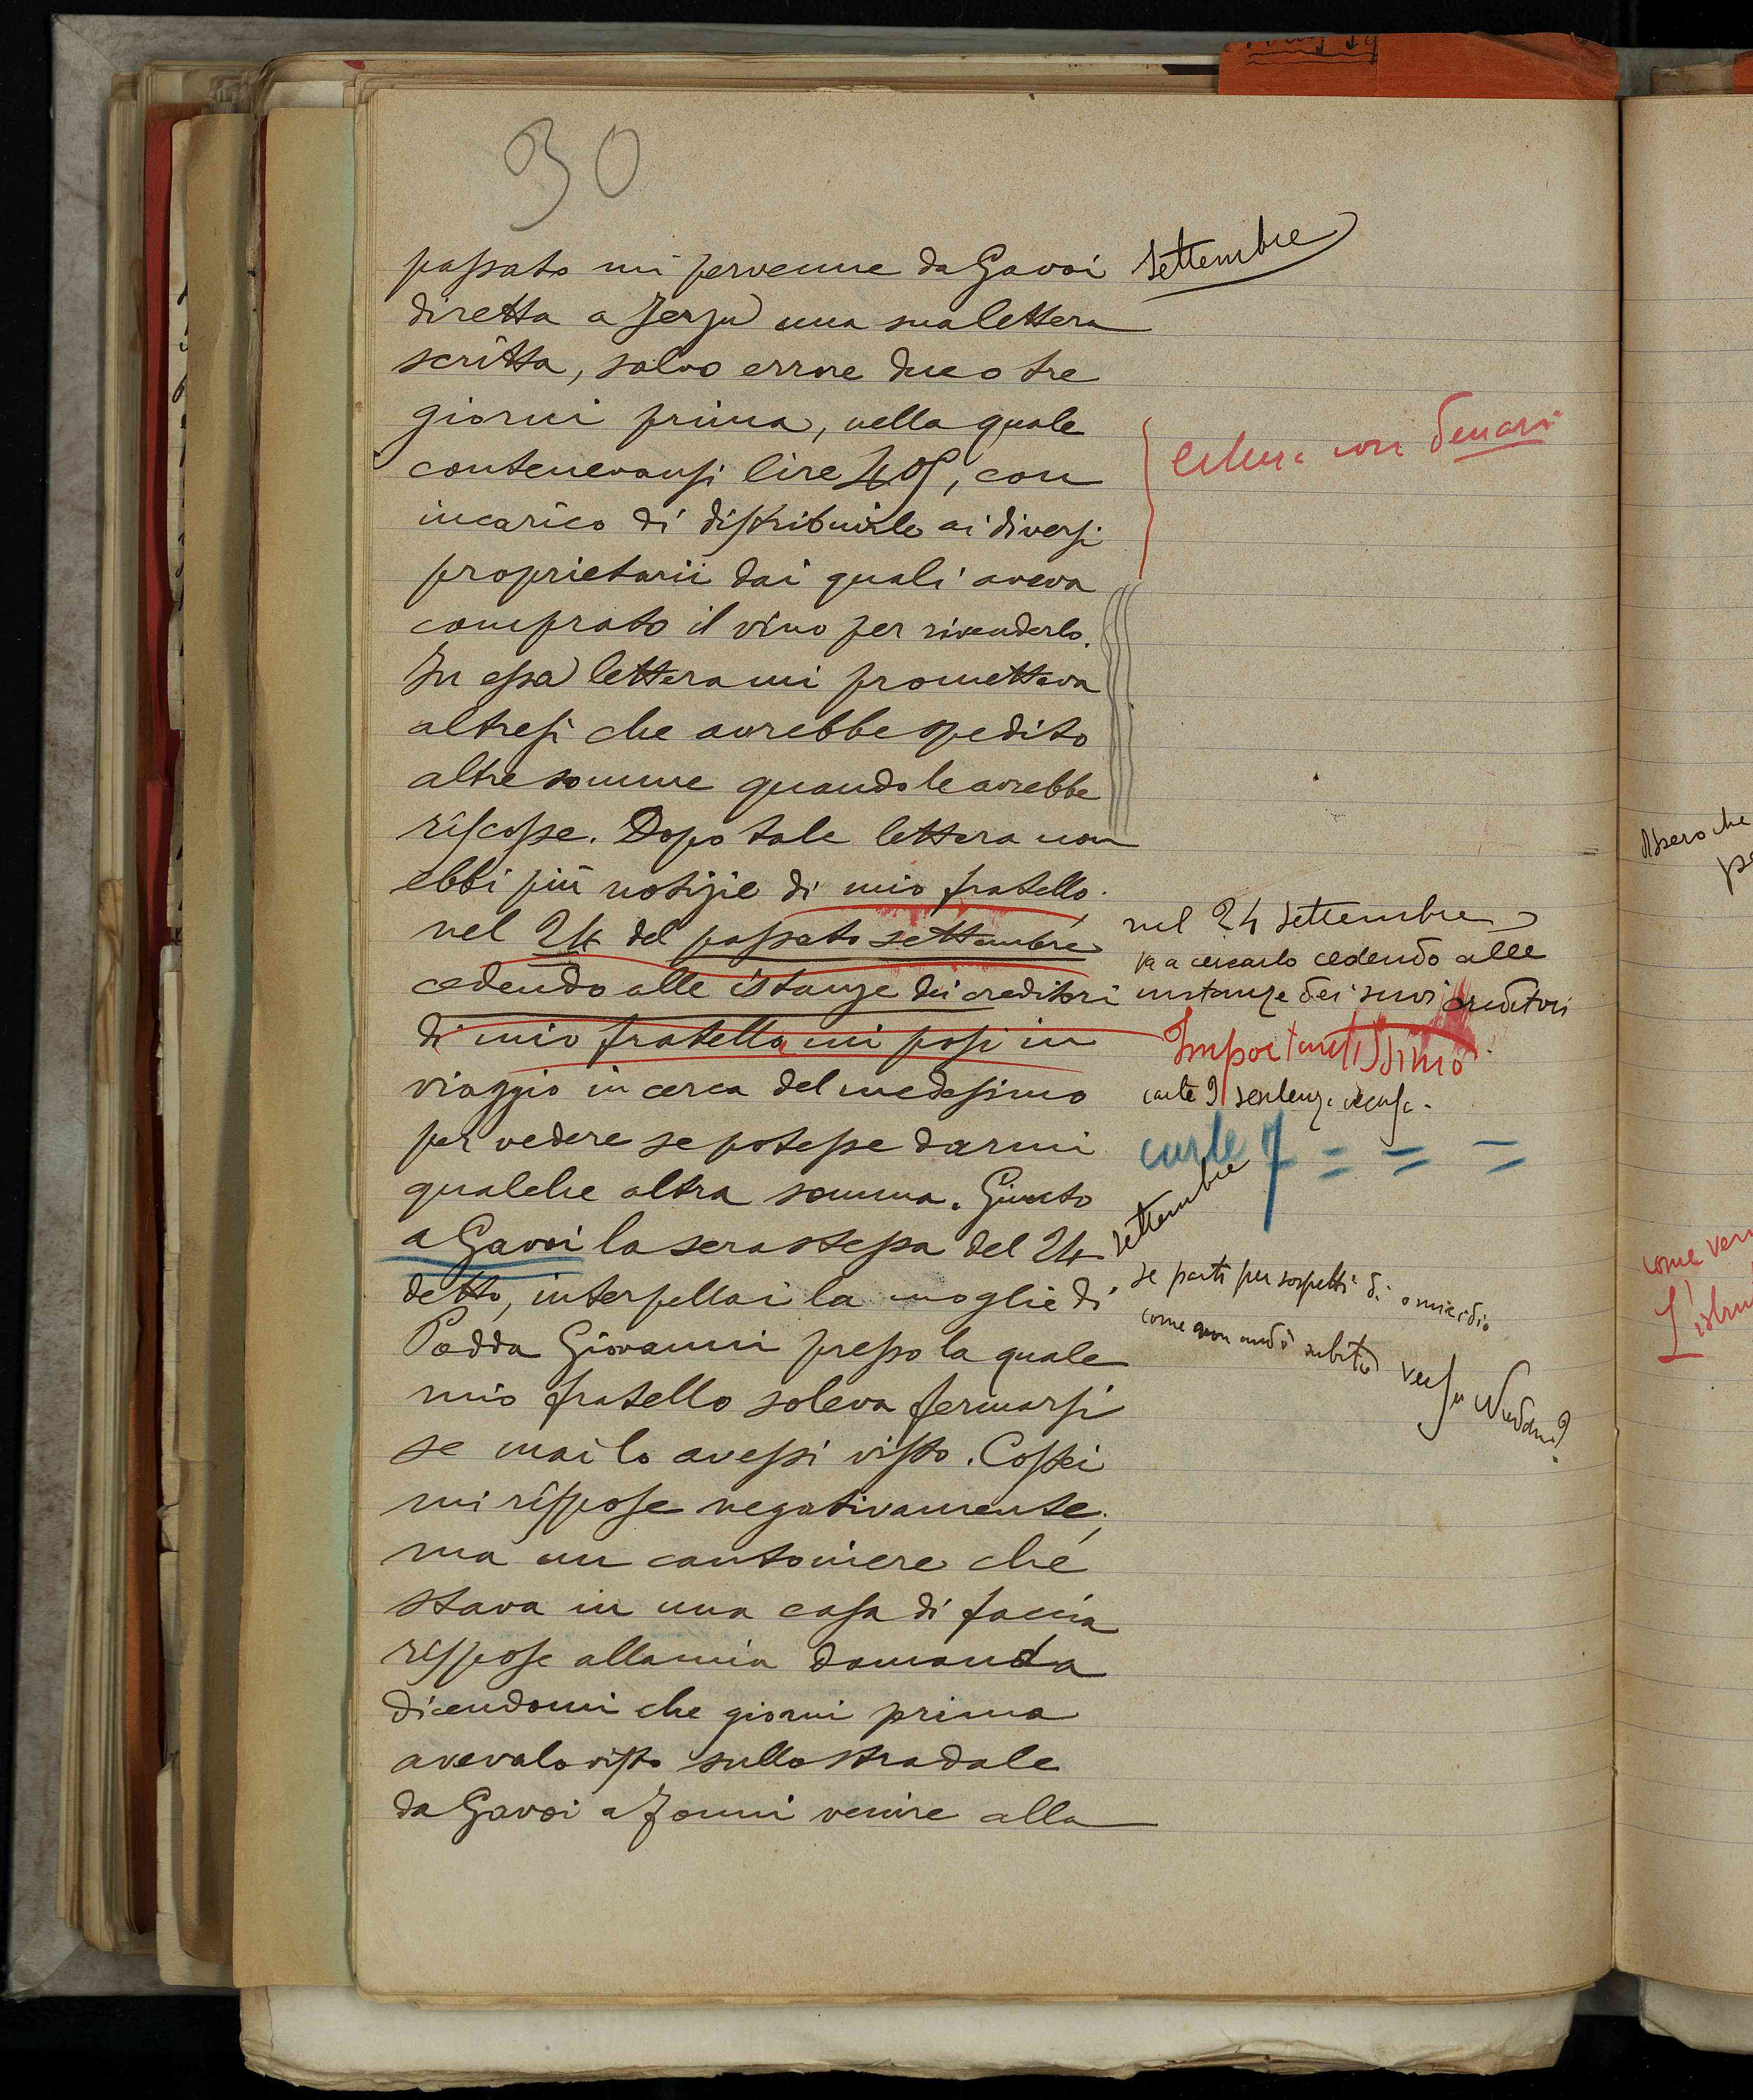 30
passato mi pervenne da Gavoi
diretta a Jerzu una sua lettera
scritta, salvo errore due o tre
giorni prima, nella quale
contenevansi lire 405, con
incarico di distribuirle ai diversi
proprietarii dai quali aveva
comprato il vino per rivenderlo.
In essa lettera mi prometteva
altresì che avrebbe spedito
altre somme quando le avrebbe
riscosse. Dopo tale lettera non
ebbi più notizie di mio fratello.
nel 24 del passato settembre
cedendo alle istanze dei creditori
di mio fratello mi posi in
viaggio in cerca del medesimo
per vedere se potesse darmi
qualche altra somma. Giunto
a Gavoi la sera stessa del 24
detto, interpellai la moglie di
Podda Giovanni presso la quale
mio fratello soleva fermarsi
se mai lo avessi visto. Costei
mi rispose negativamente,
ma un cantoniere che
stava in una casa di faccia
rispose alla mia domanda
dicendomi che giorni prima
avevalo visto sullo stradale
da Gavoi a Fonni venire alla
Settembre
con denari
nel 24 settembre
va a cercarlo cedendo alle
instanze dei suoi creditori
Importantissimo
carte 9 sentenza accusa.
carte 7 = = =
settembre
se partì per sospetti di omicidio
come non andò subito verso